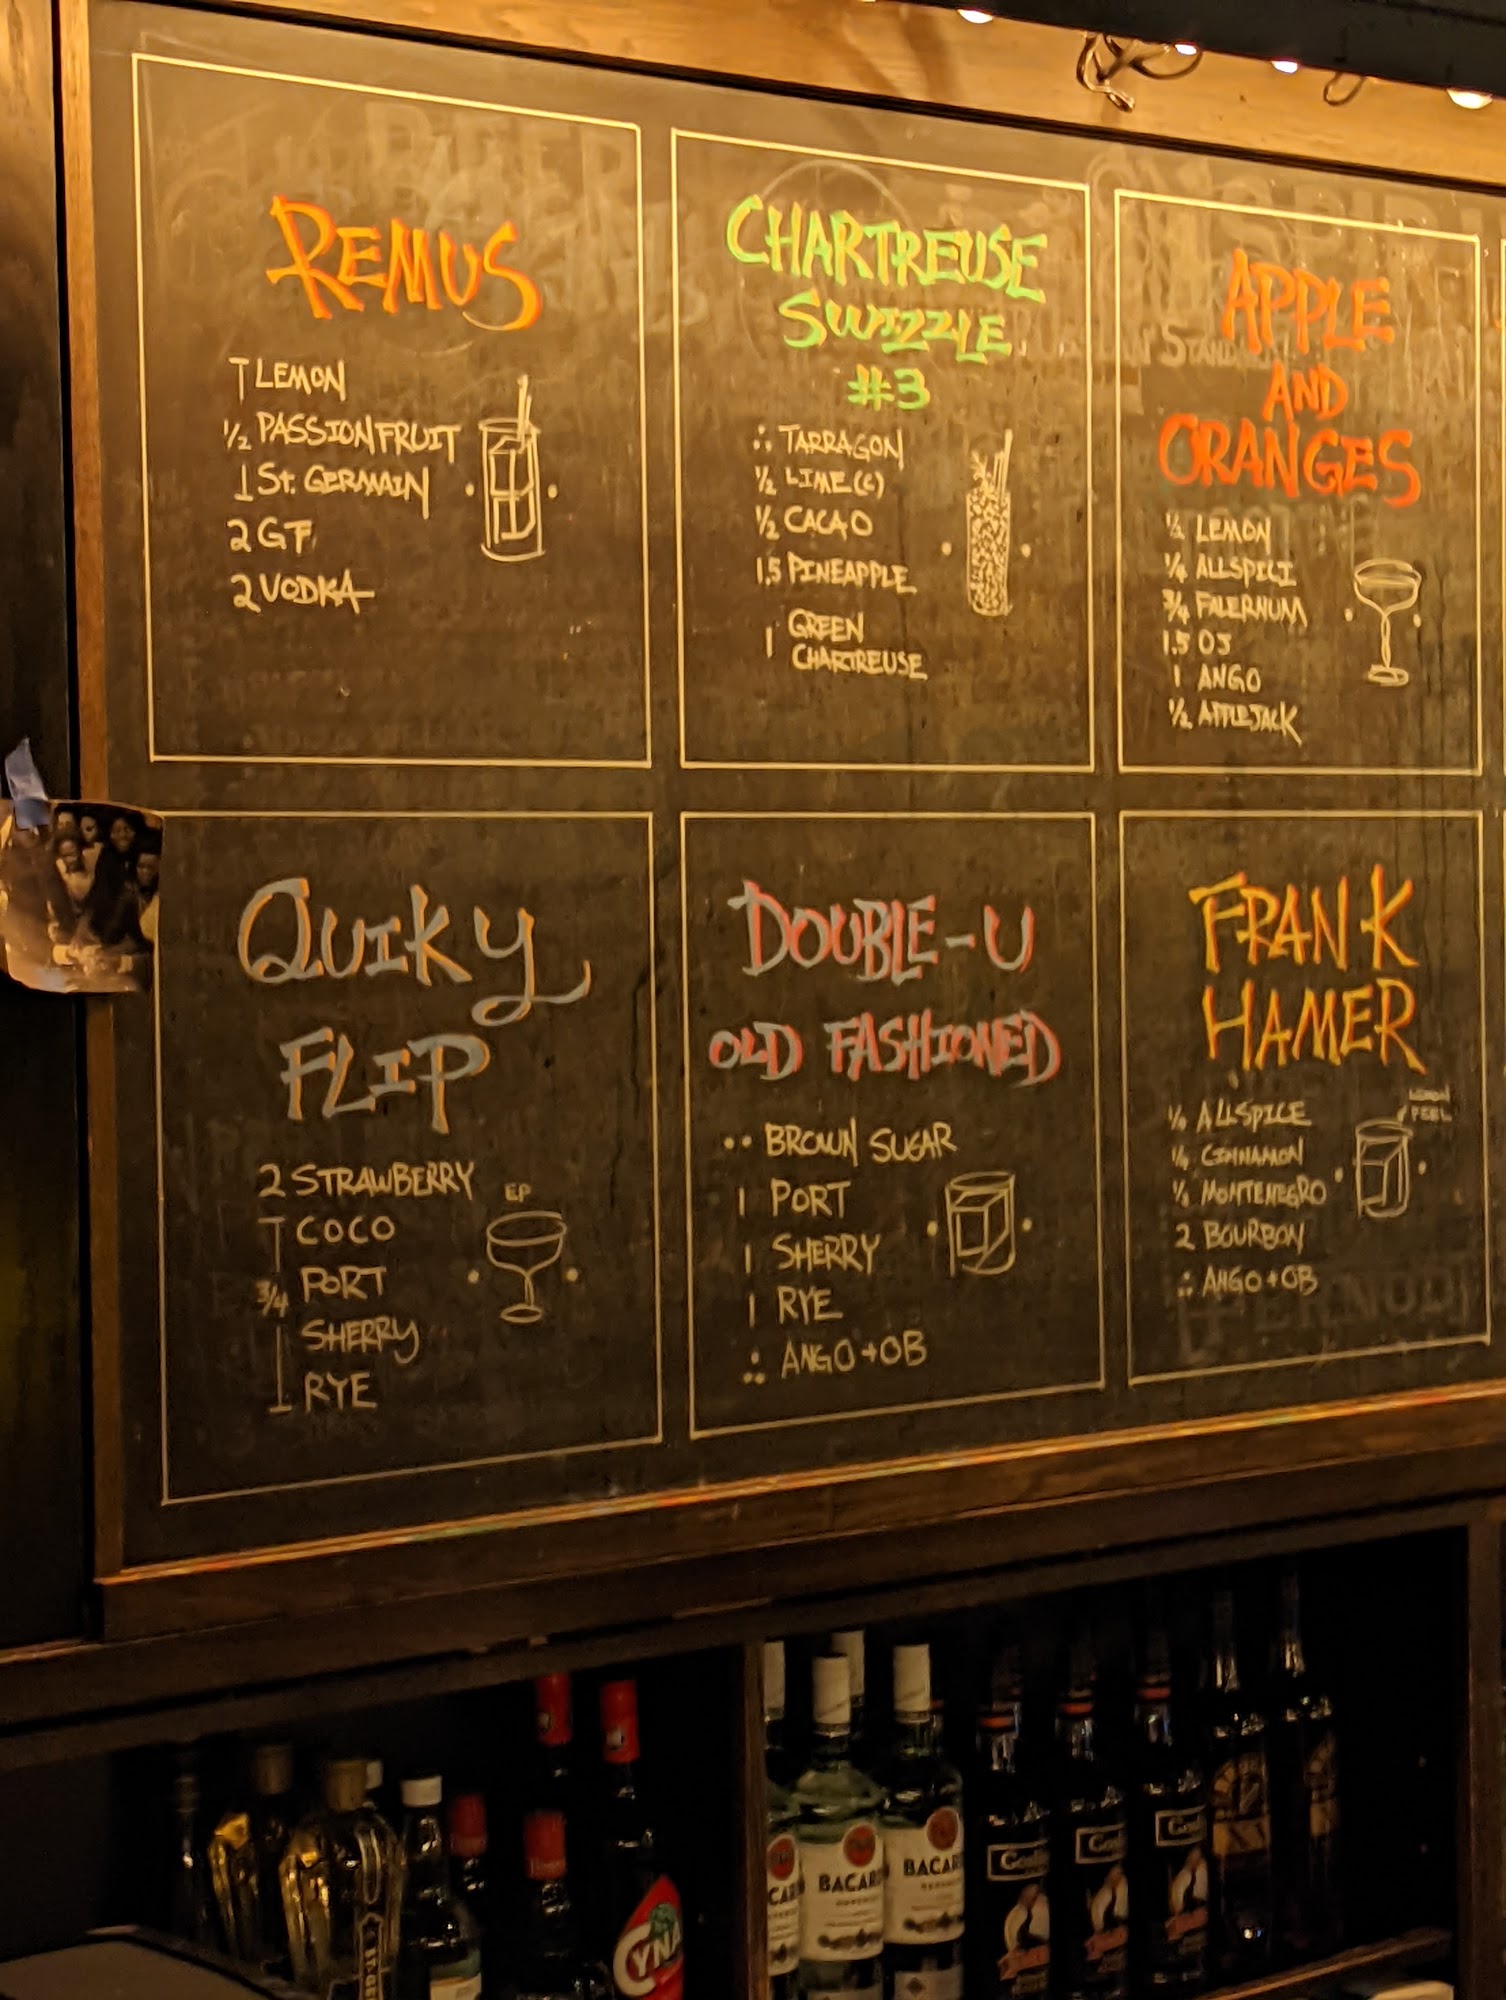 REMUS
T LEMON
1/2 PASSIONFRUIT
1 ST. GERMAIN
2 GF
2 VODKA
CHARTREUSE
SWIZZLE
#3
∴ TARRAGON
1/2 LIME(C)
1/2 CACAO
1.5 PINEAPPLE
1 GREEN
CHARTREUSE
APPLE
AND
ORANGES
1/2 LEMON
1/4 ALLSPICE
3/4 FALERNUM
1.5 OJ
1 ANGO
1/2 APPLEJACK
QUIKY
FLIP
2 STRAWBERRY
EP
COCO
3/4 PORT
SHERRY
RYE
DOUBLE-U
OLD FASHIONED
·· BROWN SUGAR
1 PORT
1 SHERRY
1 RYE
ANGO+OB
FRANK
HAMER
LEMON
PEEL
ALLSPICE
CINNAMON
MONTENEGRO
2 BOURBON
∴ ANGO+OB
CYNA
BACAR
BACAR